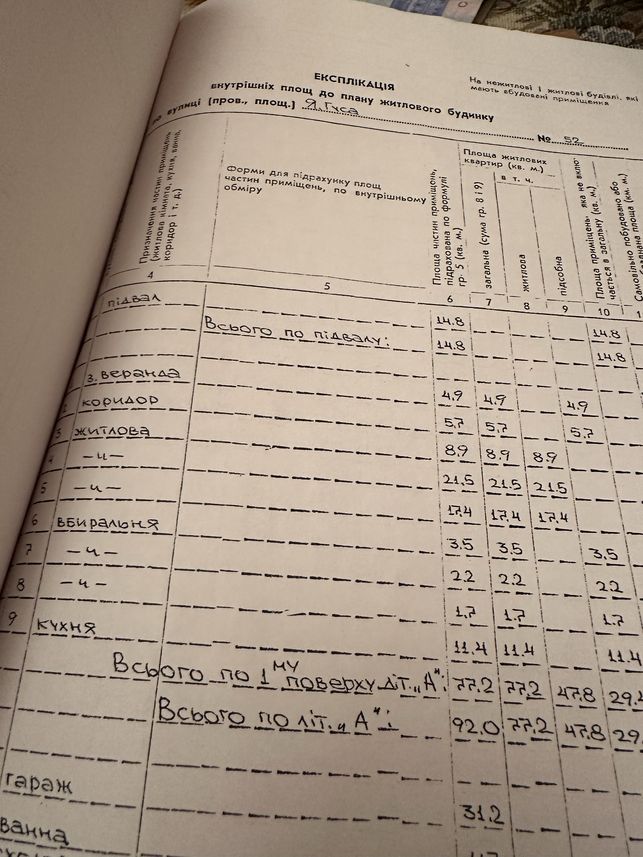 ЕКСПЛІКАЦІЯ
внутрішніх площ до плану житлового будинку
На нежитлові і житлові будівлі, які
мають вбудовані приміщення
по вулиці (пров., площ.) Я.Гуса № 52
Призначення частин приміщень (житлова кімната, кухня, ванна, коридор і т. д.)
Форми для підрахунку площ частин приміщень, по внутрішньому обміру
Площа частин приміщень, підрахована по формулі гр. 5 (кв. м.)
Площа житлових квартир (кв. м.)
загальна (сума гр. 8 і 9)
в т. ч.
житлова
підсобна
Площа приміщень, яка не включається в загальну (кв. м.)
Самовільно побудовано або площа (кв. м.)
4 5 6 7 8 9 10 1
підвал 14.8 14.8
Всього по підвалу: 14.8 14.8
з. веранда 4.9 4.9 4.9
2 коридор 5.7 5.7 5.7
3 житлова 8.9 8.9 8.9
4 —"— 21.5 21.5 21.5
5 —"— 17.4 17.4 17.4
6 вбиральня 3.5 3.5 3.5
7 —"— 2.2 2.2 2.2
8 —"— 1.7 1.7 1.7
9 кухня 11.4 11.4 11.4
Всього по 1му поверху літ. „А": 77.2 77.2 47.8 29.4
Всього по літ. „А": 92.0 77.2 47.8 29.
гараж 31.2
ванна